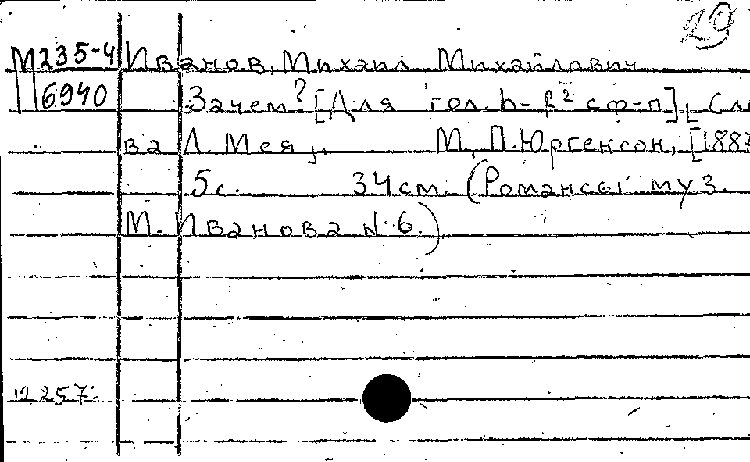 29
М235-4 Иванов, Михаил Михайлович
6940 Зачем? [Для гол. h-f² с ф-п]. Сло
ва Л. Мея, М., П. Юргенсон, [188
5 с. 34 см. (Романсы муз.
М. Иванова № 6.)
12257